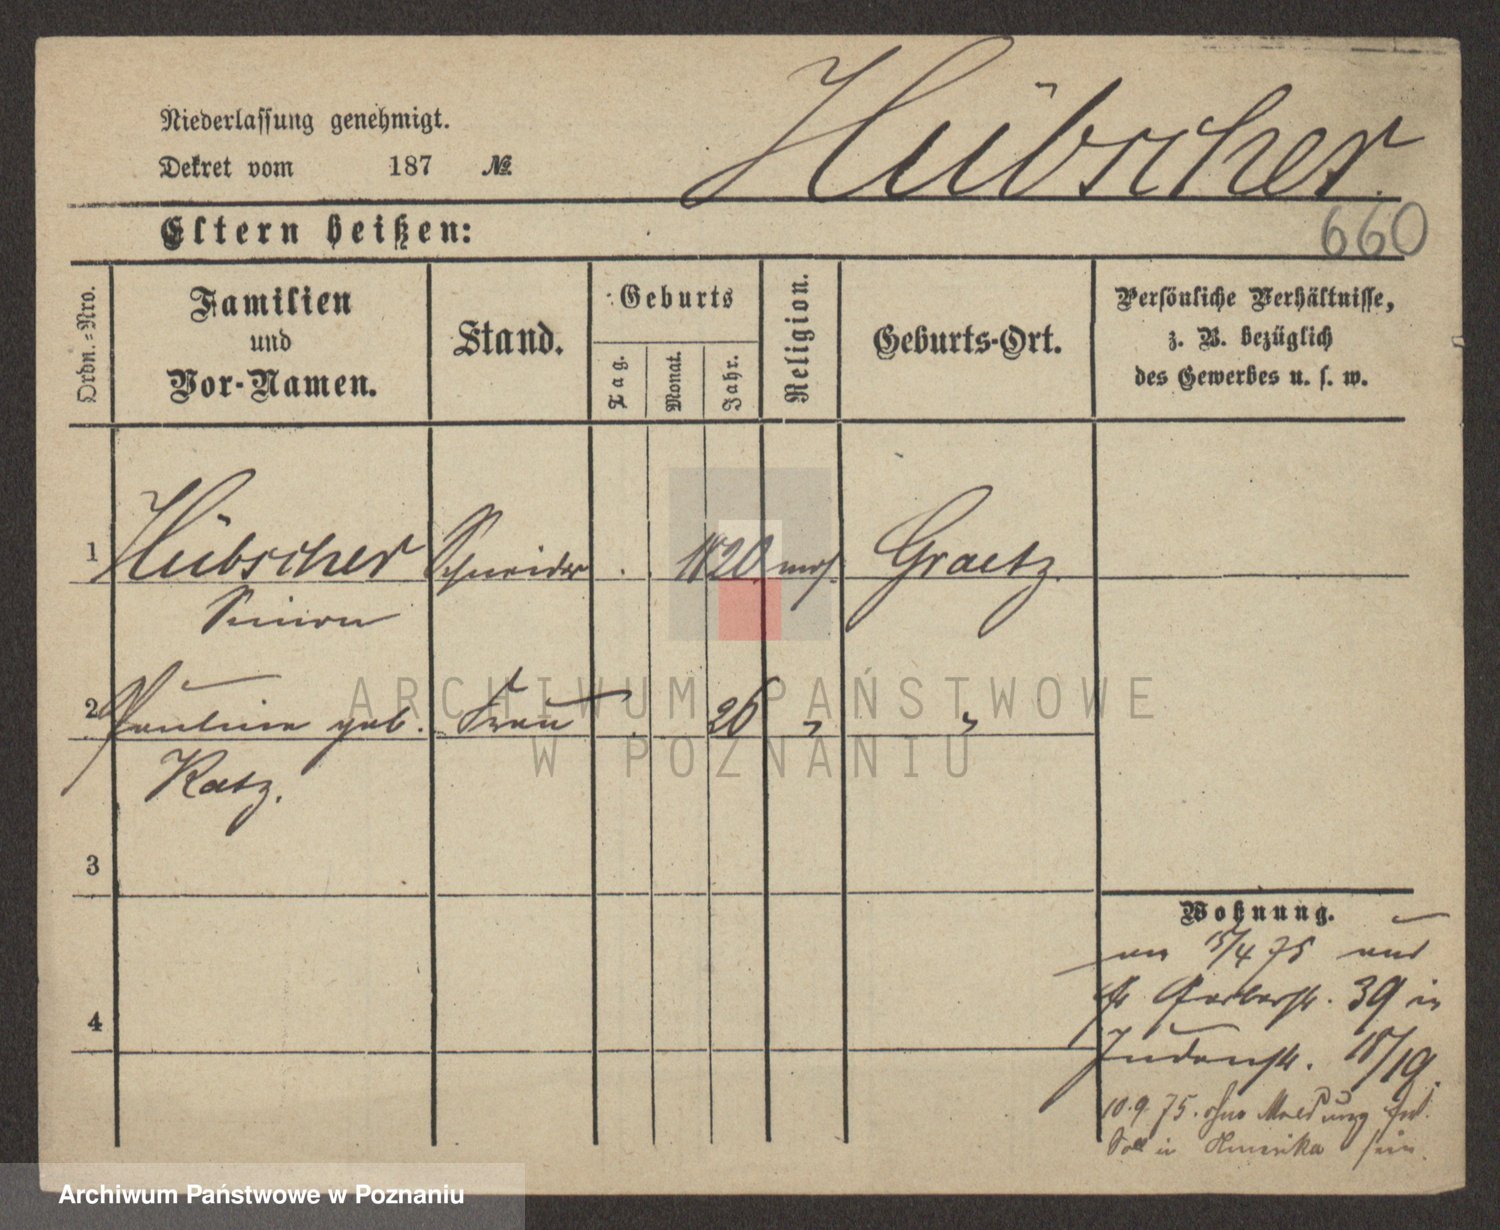 Niederlassung genehmigt.
Dekret vom 187 №
Hübscher.
660
Eltern heißen:
Ordn.-Nro.
Familien
und
Vor-Namen.
Stand.
Geburts
Tag.
Monat.
Jahr.
Religion.
Geburts-Ort.
Persönliche Verhältnisse,
z. B. bezüglich
des Gewerbes u. s. w.
1 Hübscher Schneider 1820 mos. Graetz.
Simon
2 Pauline geb. Frau 26 " "
Katz.
3
4
Wohnung.
am 15/4 75 aus
Gerberstr. 39 in
Judenstr. 18/19.
10.9.75. ohne Meldung
Soll in Amerika sein.
ARCHIWUM PAŃSTWOWE
W POZNANIU
Archiwum Państwowe w Poznaniu